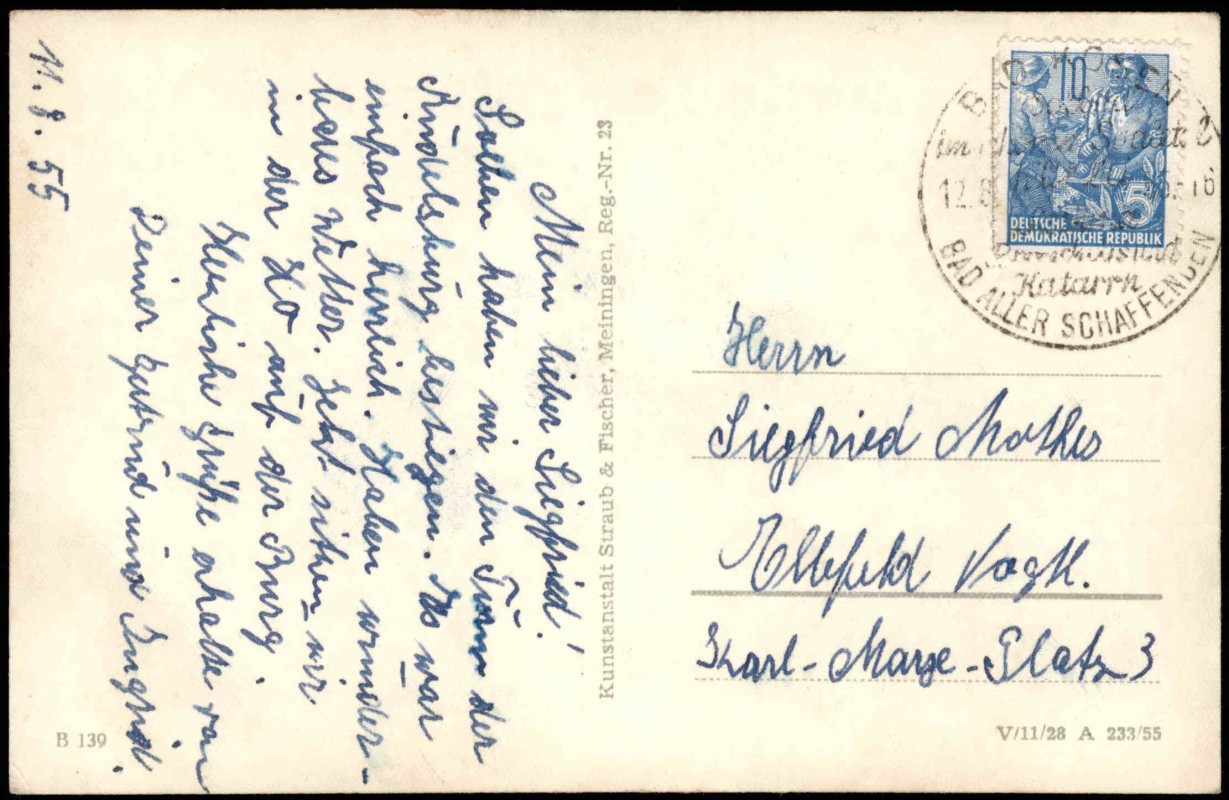 11. 8. 55
Mein lieber Siegfried!
Soeben haben wir den Turm der
Rudelsburg bestiegen. Es war
einfach herrlich. Haben wunder-
bares Wetter. Jetzt sitzen wir
in der HO auf der Burg.
Herzliche Grüße erhalte von
Deiner Gutrud und Ingrid.
B 139
Kunstanstalt Straub & Fischer, Meiningen, Reg.-Nr. 23
10
5
DEUTSCHE
DEMOKRATISCHE REPUBLIK
BAD KÖSEN
12.8.
16
Katarrh
BAD ALLER SCHAFFENDEN
Herrn
Siegfried Mothes
Ellefeld Vogtl.
Karl-Marx-Platz 3
V/11/28 A 233/55